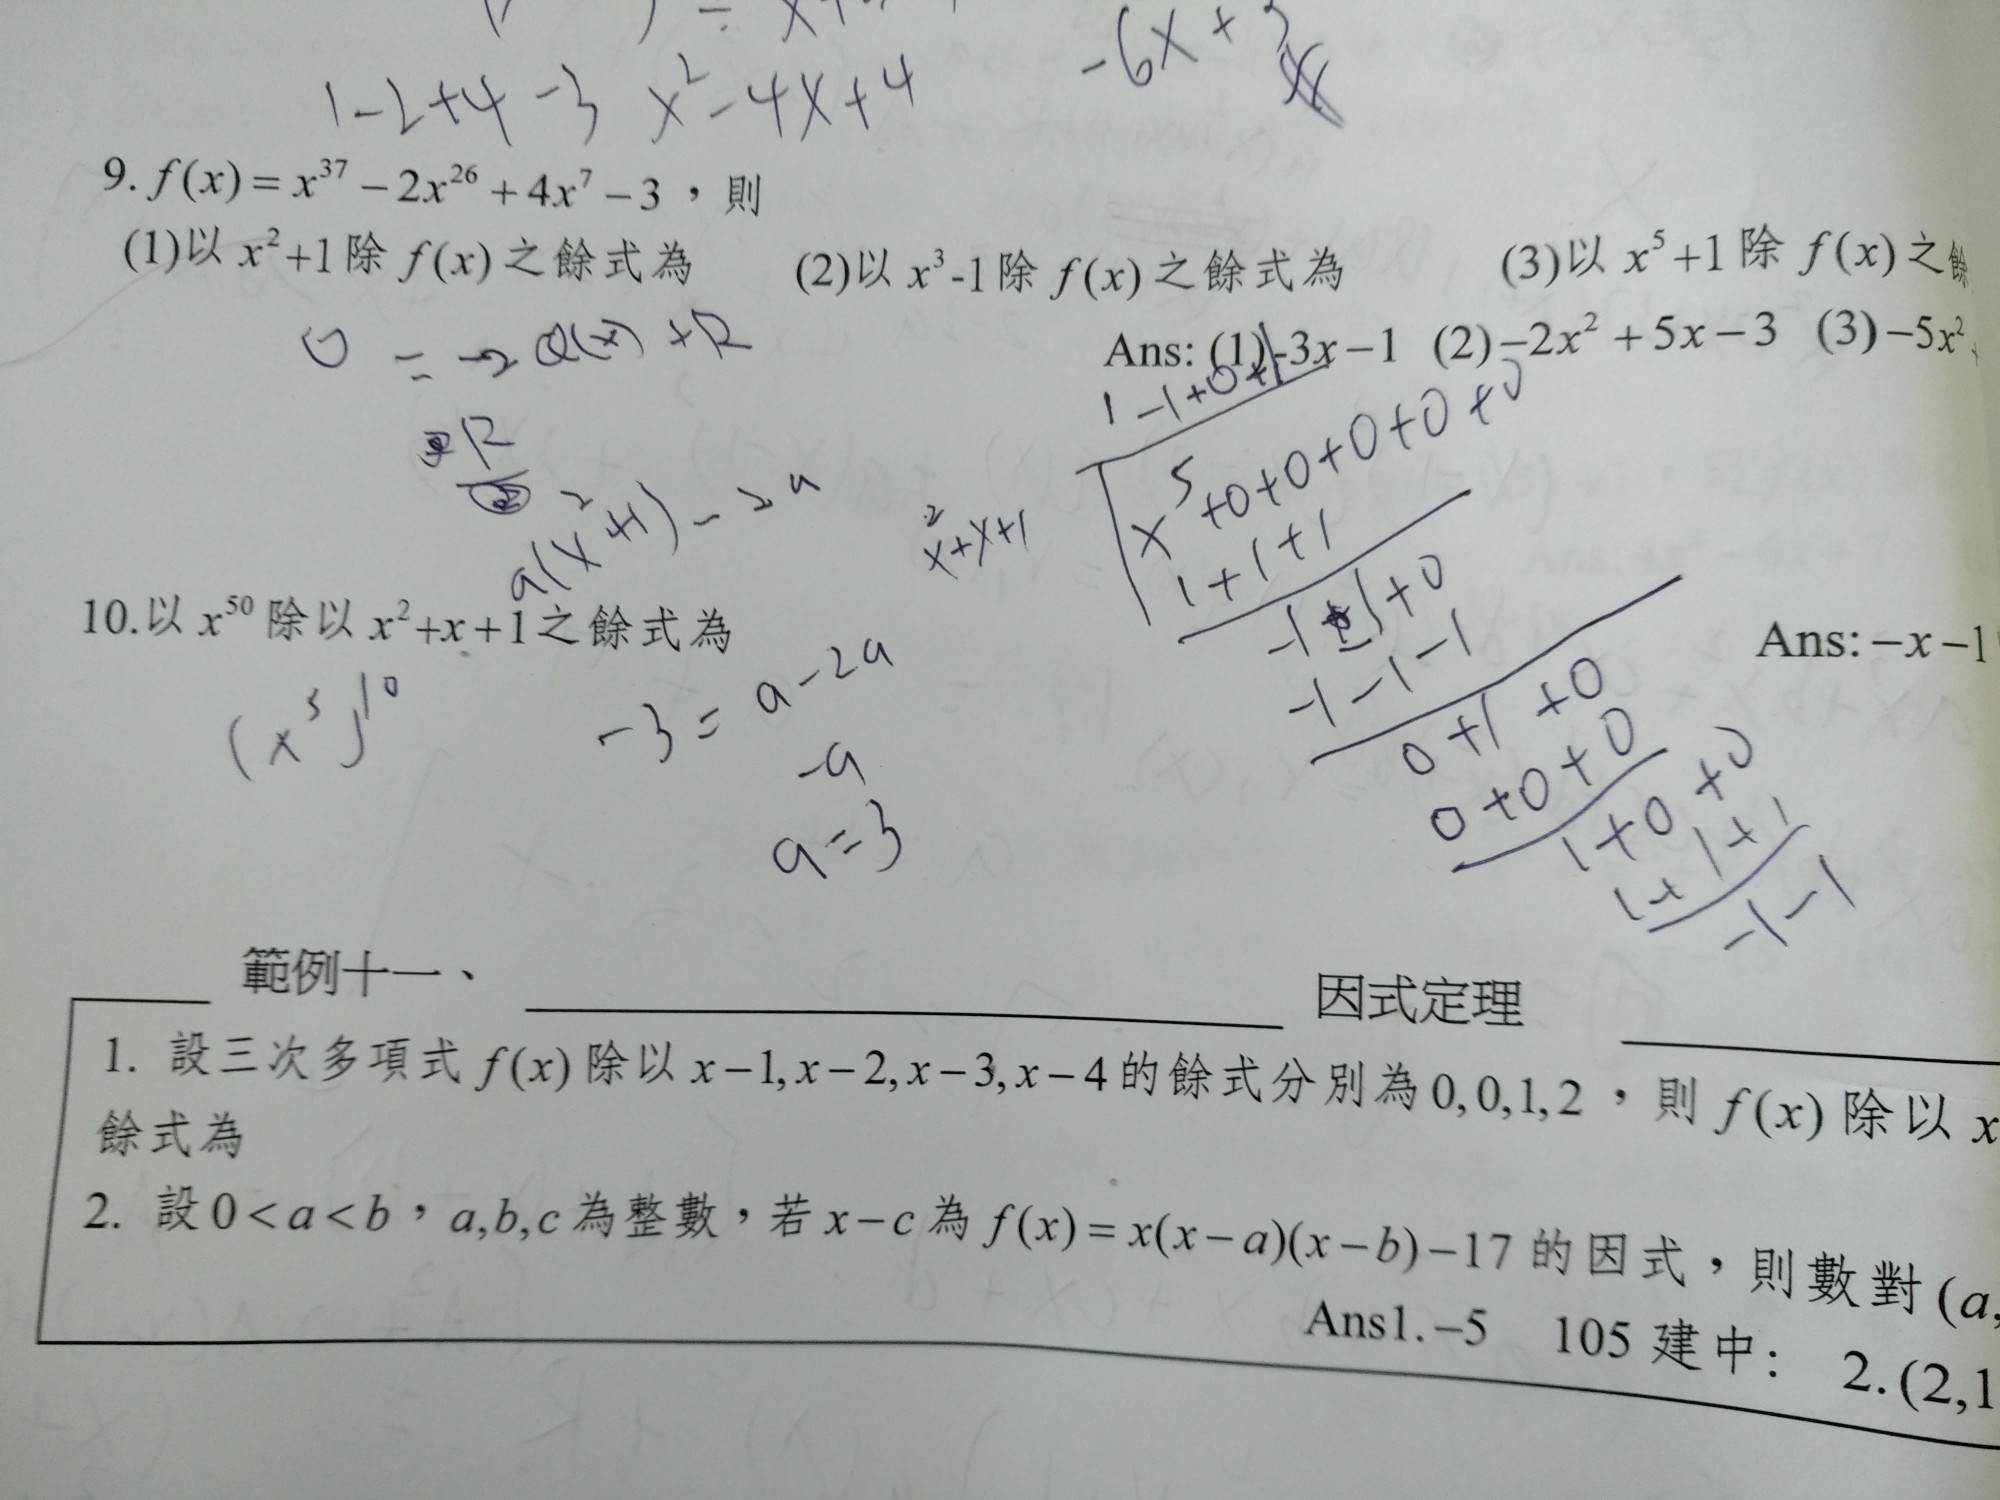 1-2+4-3 x²-4x+4 -6x+3
9. f(x) = x³⁷ − 2x²⁶ + 4x⁷ − 3，則
(1)以 x²+1 除 f(x) 之餘式為 (2)以 x³-1 除 f(x) 之餘式為 (3)以 x⁵+1 除 f(x) 之餘
Ans: (1)-3x−1 (2)−2x²+5x−3 (3)−5x²
0 = → Q(x) + R
1-1+0+1
R
x⁵+0+0+0+0+0
a(x²+1) -2a
x²+x+1
1+1+1
-1-1+0
-1-1-1
10.以 x⁵⁰ 除以 x²+x+1之餘式為
Ans: −x−1
(x⁵)¹⁰
-3 = a-2a
0+1+0
-a
0+0+0
a=3
1+0+0
1+1+1
-1-1
範例十一、 因式定理
1. 設三次多項式 f(x) 除以 x−1, x−2, x−3, x−4 的餘式分別為 0, 0, 1, 2，則 f(x) 除以 x
餘式為
2. 設 0<a<b，a,b,c 為整數，若 x−c 為 f(x) = x(x−a)(x−b)−17 的因式，則數對 (a,
Ans1. −5 105 建中: 2. (2,1